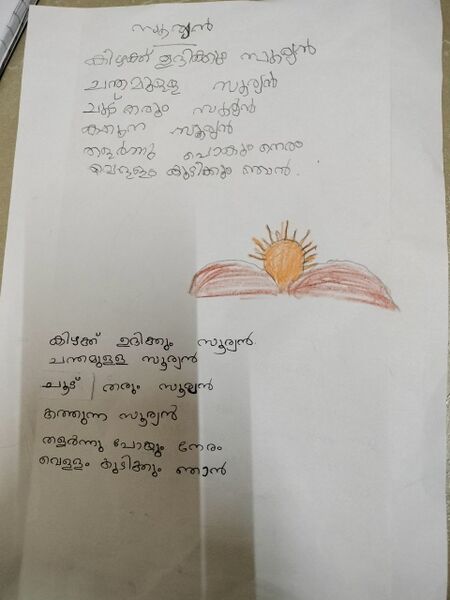 സൂര്യൻ
കിഴക്ക് ഉദിക്കും സൂര്യൻ
ചന്തമുള്ള സൂര്യൻ
ചൂട് തരും സൂര്യൻ
കത്തുന്ന സൂര്യൻ
തളർന്നു പൊകും നെരം
വെള്ളം കുടിക്കും ഞാൻ.
കിഴക്ക് ഉദിക്കും സൂര്യൻ
ചന്തമുള്ള സൂര്യൻ
ചൂട് തരും സൂര്യൻ
കത്തുന്ന സൂര്യൻ
തളർന്നു പോകും നേരം
വെള്ളം കുടിക്കും ഞാൻ